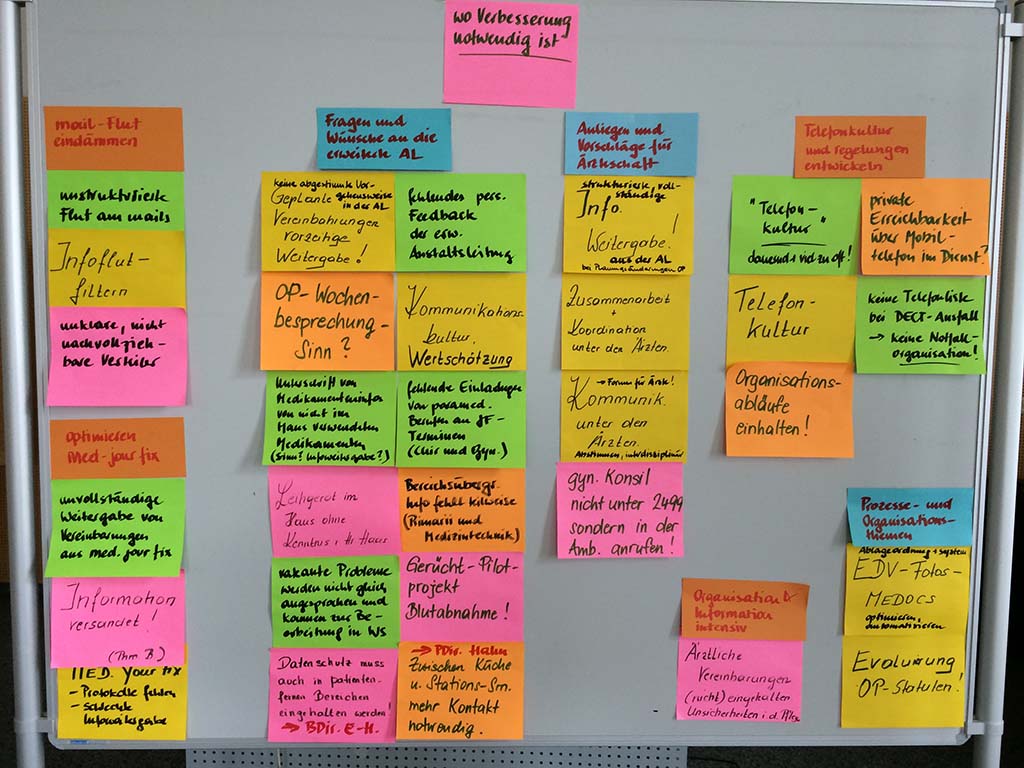 wo Verbesserung
notwendig ist
mail-Flut
eindämmen
unstrukturierte
Flut an mails
Infoflut-
filtern
unklare, nicht
nachvollzieh-
bare Verteiler
optimieren
Med-jour fix
unvollständige
Weitergabe von
Vereinbarungen
aus med. jour fix
Information
versandet!
(Thm B)
MED. Your fix
- Protokolle fehlen
- schlechte
Infoweitergabe
Fragen und
Wünsche an die
erweiterte AL
keine abgestimmte Vor-
gehensweise
in der AL
Geplante
Vereinbahrungen
vorzeitige
Weitergabe!
OP-Wochen-
besprechung-
Sinn?
Unterschrift von
Medikamenteninfos
von nicht im
Haus verwendeten
Medikamenten
(Sinn? Infoweitergabe?)
Leihgerät im
Haus ohne
Kenntnis i. Hr. Haus
vakante Probleme
werden nicht gleich
angesprochen und
kommen zur Be-
arbeitung in WS
Datenschutz muss
auch in patienten-
fernen Bereichen
eingehalten werden!
→ BDir. E-H.
fehlendes pers.
Feedback
der erw.
Anstaltsleitung
Kommunikations-
kultur,
Wertschätzung
fehlende Einladungen
von paramed.
Berufen an JF-
Terminen
(Chir und Gyn.)
Bereichsübergr.
Info fehlt teilweise
(Primarii und
Medizintechnik)
Gerücht-Pilot-
projekt
Blutabnahme!
→ PDir. Hahn
Zwischen Küche
u. Stations-Sr.
mehr Kontakt
notwendig.
Anliegen und
Vorschläge für
Ärzteschaft
strukturierte, voll-
ständige
Info.
Weitergabe!
aus der AL
bei Planungsänderungen OP
Zusammenarbeit
+
Koordination
unter den Ärzten.
→ Forum für Ärzte!
Kommunik.
unter den
Ärzten.
Abstimmen, interdisziplinär
gyn. Konsil
nicht unter 2499
sondern in der
Amb. anrufen!
Telefonkultur
und regelungen
entwickeln
"Telefon-
kultur"
dauernd + viel zu oft!
Telefon-
kultur
Organisations-
abläufe
einhalten!
private
Erreichbarkeit
über Mobil-
telefon im Dienst?
keine Telefonliste
bei DECT-Ausfall
→ keine Notfall-
organisation!
Organisation &
Information
intensiv
Ärztliche
Vereinbarungen
(nicht) eingehalten
Unsicherheiten i.d.
Prozesse- und
Organisations-
themen
Ablageordnung + system
EDV-Fotos-
MEDOCS
optimieren,
automatisieren
Evaluierung
OP-Statuten!